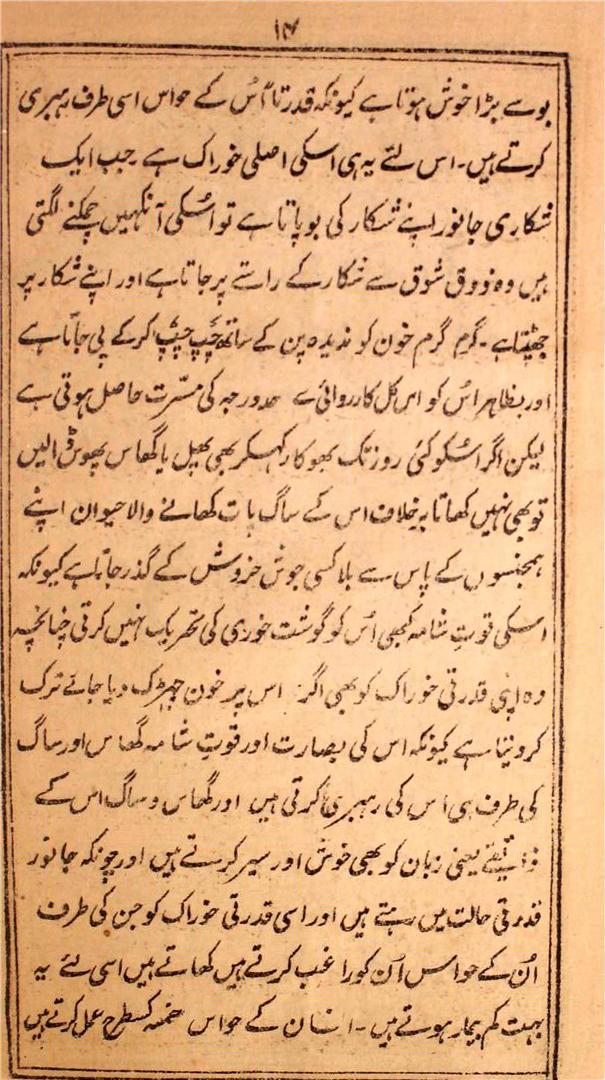 ۱۴
بوسے بڑا خوش ہوتا ہے کیونکہ قدرتاً اُس کے حواس اسی طرف رہبری
کرتے ہیں۔ اس لئے یہ ہی اسکی اصلی خوراک ہے۔ جب ایک
شکاری جانور اپنے شکار کی بو پاتا ہے تو اُسکی آنکھیں چمکنے لگتی
ہیں وہ ذوق شوق سے شکار کے راستے پر جاتا ہے اور اپنے شکار پر
جھپٹتا ہے۔ گرم گرم خون کو ندیدہ پن کے ساتھ چَپ چَپ کرکے پی جاتا ہے
اور بظاہر اُس کو اس کل کارروائی سے حد درجہ کی مسّرت حاصل ہوتی ہے
لیکن اگر اُسکو کئی روز تک بھوکا رکھکر بھی پھل یا گھاس پھوس ڈالیں
تو بھی نہیں کھاتا بہ خلاف اس کے ساگ پات کھانے والا حیوان اپنے
ہمجنسوں کے پاس سے بلا کسی جوش خروش کے گذر جاتا ہے کیونکہ
اسکی قوتِ شامہ کبھی اُس کو گوشت خوری کی تحریک نہیں کرتی چنانچہ
وہ اپنی قدرتی خوراک کو بھی اگر اس پر خون چھڑک دیا جائے ترک
کر دیتا ہے کیونکہ اس کی بصارت اور قوتِ شامہ گھاس اور ساگ
کی طرف ہی اس کی رہبری کرتی ہیں اور گھاس و ساگ اس کے
ذایٔقے یعنی زبان کو بھی خوش اور سیر کرتے ہیں اور چونکہ جانور
قدرتی حالت میں رہتے ہیں اور اسی قدرتی خوراک کو جن کی طرف
اُن کے حواس اُن کو راغب کرتے ہیں کھاتے ہیں اسی لئے یہ
بہت کم بیمار ہوتے ہیں۔ انسان کے حواس خمسہ کسطرح عمل کرتے ہیں